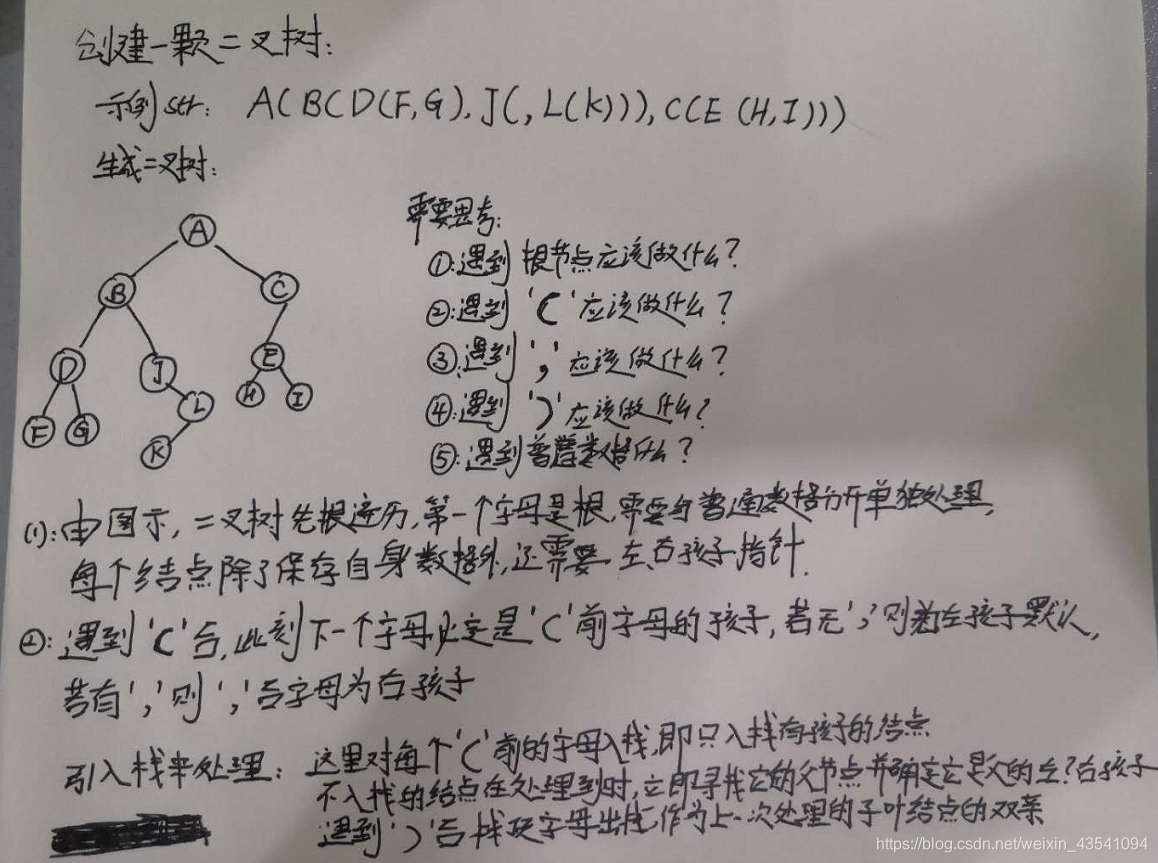 创建一颗二叉树:
示例str: A(B(D(F,G),J(,L(K))),C(E(H,I)))
生成二叉树:
需要思考:
①:遇到根节点应该做什么?
②:遇到'('应该做什么?
③:遇到','应该做什么?
④:遇到')'应该做什么?
⑤:遇到普通数据什么?
A
B C
D J E
F G L H I
K
(1):由图示,二叉树先根遍历,第一个字母是根,需要与普通数据分开单独处理,
每个结点除了保存自身数据外,还需要左、右孩子指针.
②:遇到'('后,此刻下一个字母必定是'('前字母的孩子,若无','则为左孩子默认,
若有','则','后字母为右孩子
引入栈来处理: 这里对每个'('前的字母入栈,即只入栈有孩子的结点
不入栈的结点在处理到时,立即寻找它的父节点并确定它是父的左?右孩子
遇到')'后栈顶字母出栈作为上一次处理的子叶结点的双亲
https://blog.csdn.net/weixin_43541094